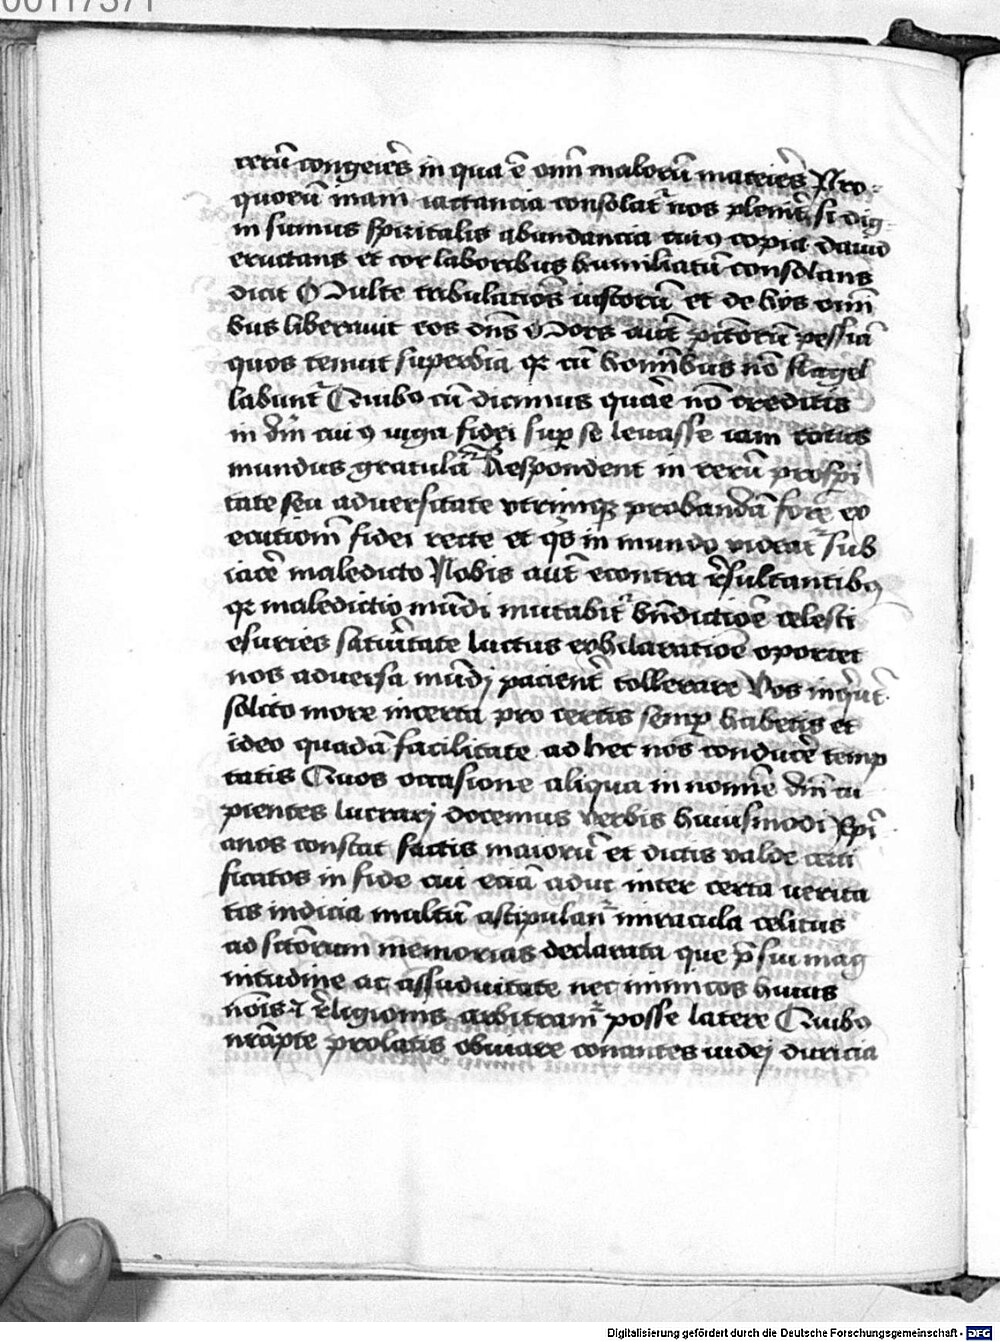 00117371
rerū congeries in qua ē om̄ malorū materies Pro
quorū inani iactancia consolat̄ nos plenit̄ si dig
ni sumus spiritalis abundancia cuiꝰ copia dauid
eructans et cor laboribus humiliatū consolans
dicit Multe tribulatiōs iustorū et de hijs om̄i
bus liberauit eos dn̄s Mors aut̄ pctōrū pessīa
quos tenuit superbia qꝛ cū hominibus nō flagel
labunt̄ Quibꝰ cū dicimus quare nō creditis
in dm̄ cuiꝰ iuga fidei sup se leuasse iam totus
mundus gratulat̄ Respondent in rerū prospi
tate seu aduersitate vtrimqꝫ probandā fore ex
ecutionē fidei recte et qs in mundo videat̄ sub
iacē maledicto Nobis aut̄ econtra r̄sultantibꝰ
qꝛ maledictio mūdi mutabit̄ bn̄dictiōe celesti
esuries saturitate luctus exhilaratiōe oportet
nos aduersa mūdi pacient̄ tollerare Vos inquit̄
solito more incerta pro certis semp habetis et
ideo quadā facilitate ad hec nos conducē temp
tatis Quos occasione aliqua in nomīe dm̄ cu
pientes lucrari docemus verbis huiusmodi xp̄i
anos constat factis maiorū et dictis valde certi
ficatos in fide cui eciā adhuc inter certa verita
tis indicia multū astipulant̄ miracula celitus
ad sctōrum memorias declarata que p̄ sui mag
nitudine ac assiduitate nec inimicos huius
nōis ⁊ religionis arbitram̄ posse latere Quibꝰ
prolatis obuiare conantes iudei duricia
Digitalisierung gefördert durch die Deutsche Forschungsgemeinschaft - DFG